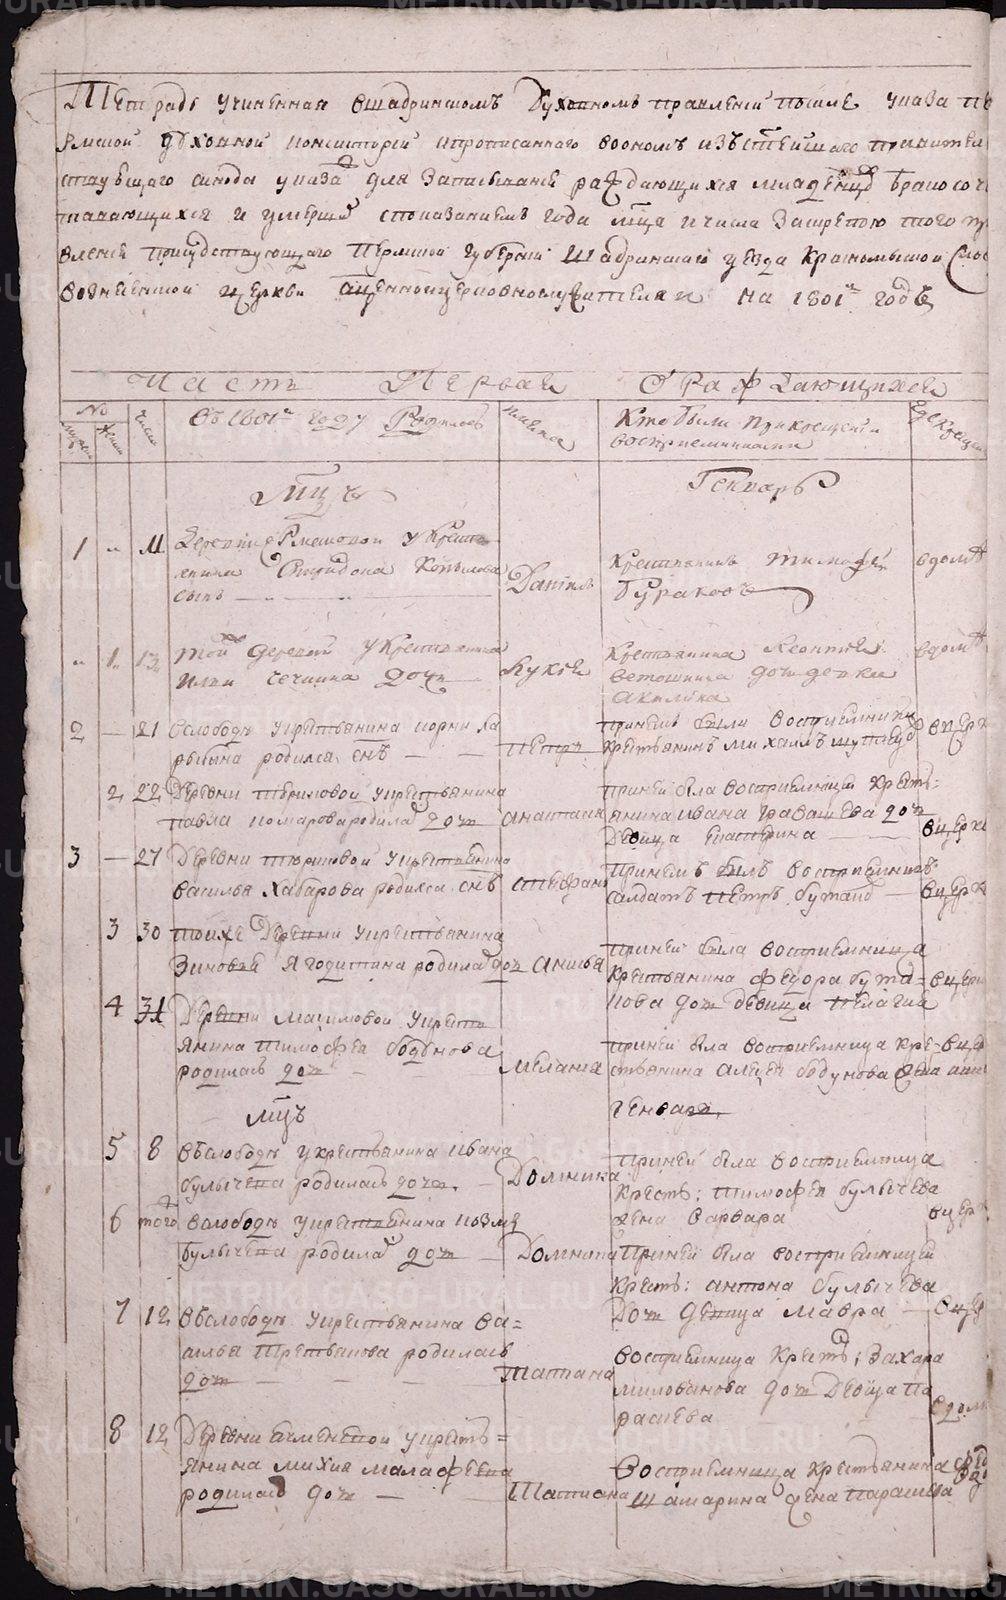 Тетрадь учиненная вшадринскомъ Духовномъ правленiи посиле указа пе
рмской духовной консисторiи ипрописаннаго воономъ изъ святейшаго правител
ствующаго синода указа для записыванiя раждающихся младенцовъ бракосоче
тавающихся и умершихъ споказанiемъ года мца ичисла заскрепою того пра
вленiя присудствующаго Пермской губернiи Шадринскаго уезда Красномыской Сло
вознесенской церкви священноцерковнослужителями на 1801й годъ
Часть Первая О Раждающихся
No числа въ 1801м году Родилось имена Кто были прикрещенiи восприемниками где крещены
Мцъ Генварь
1 „ 11 Деревни у Крестья
янина Спиридона Копылова
сынъ Данiилъ Крестьянинъ Тимофей
Бураковъ вдомѣ
„ 1 13 той деревни укрестьянина
Ильи дочь Гликѣя Крестьянина Леонтия
Ветошкина дочь девка
Акилина вдомѣ
2 — 21 вслободѣ укрестьянина корнила
рыбина родился снъ — — Петръ принемъ были восприемники
крестьянинъ михаилъ вцерк
2 22 Деревни укрестьянина
павла комарова родилась дочь анастасия приней была восприемницей кресть=
янина ивана дочь
Девица екатерина — вцерк
3 — 27 Деревни укрестьянина
василья Хабарова родился снъ Стефанъ принемъ былъ восприемникъ
салдатъ Петръ — вцерк
3 30 тойже Деревни укрестьянина
Зиновiя Ягодкина родилась дочь Анисья приней была восприемница
крестьянина федора бута=
кова дочь девица Пелагия вцерк
4 31 Деревни Макимовой укресть
янина тимофея бодунова
родилась дочь — Меланiя приней была восприемница кре=
стьянина алексея бодунова жена вцер
Мцъ генваря
5 8 вслободѣ укрестьянина ивана
булычева родилась дочь — Домника приней была восприемница
Кресть: тимофея булычева
жена варвара вцерк
6 того вслободѣ укрестьянина козмы
булычева родилась дочь — Домника приней была восприемницей
Кресть: антона булычева
Дочь Девица Мавра — вцер
7 12 вслободѣ укрестьянина ва=
силья Третьякова родилась
дочь — — — Татиана восприемница Крестья: Захара
милованова дочь Девица Па
раскева вдомѣ
8 12 Деревни укресть=
янина михея малафеева
родилась дочь — Татиана восприемница крестьянина
Шамарина жена Параскева